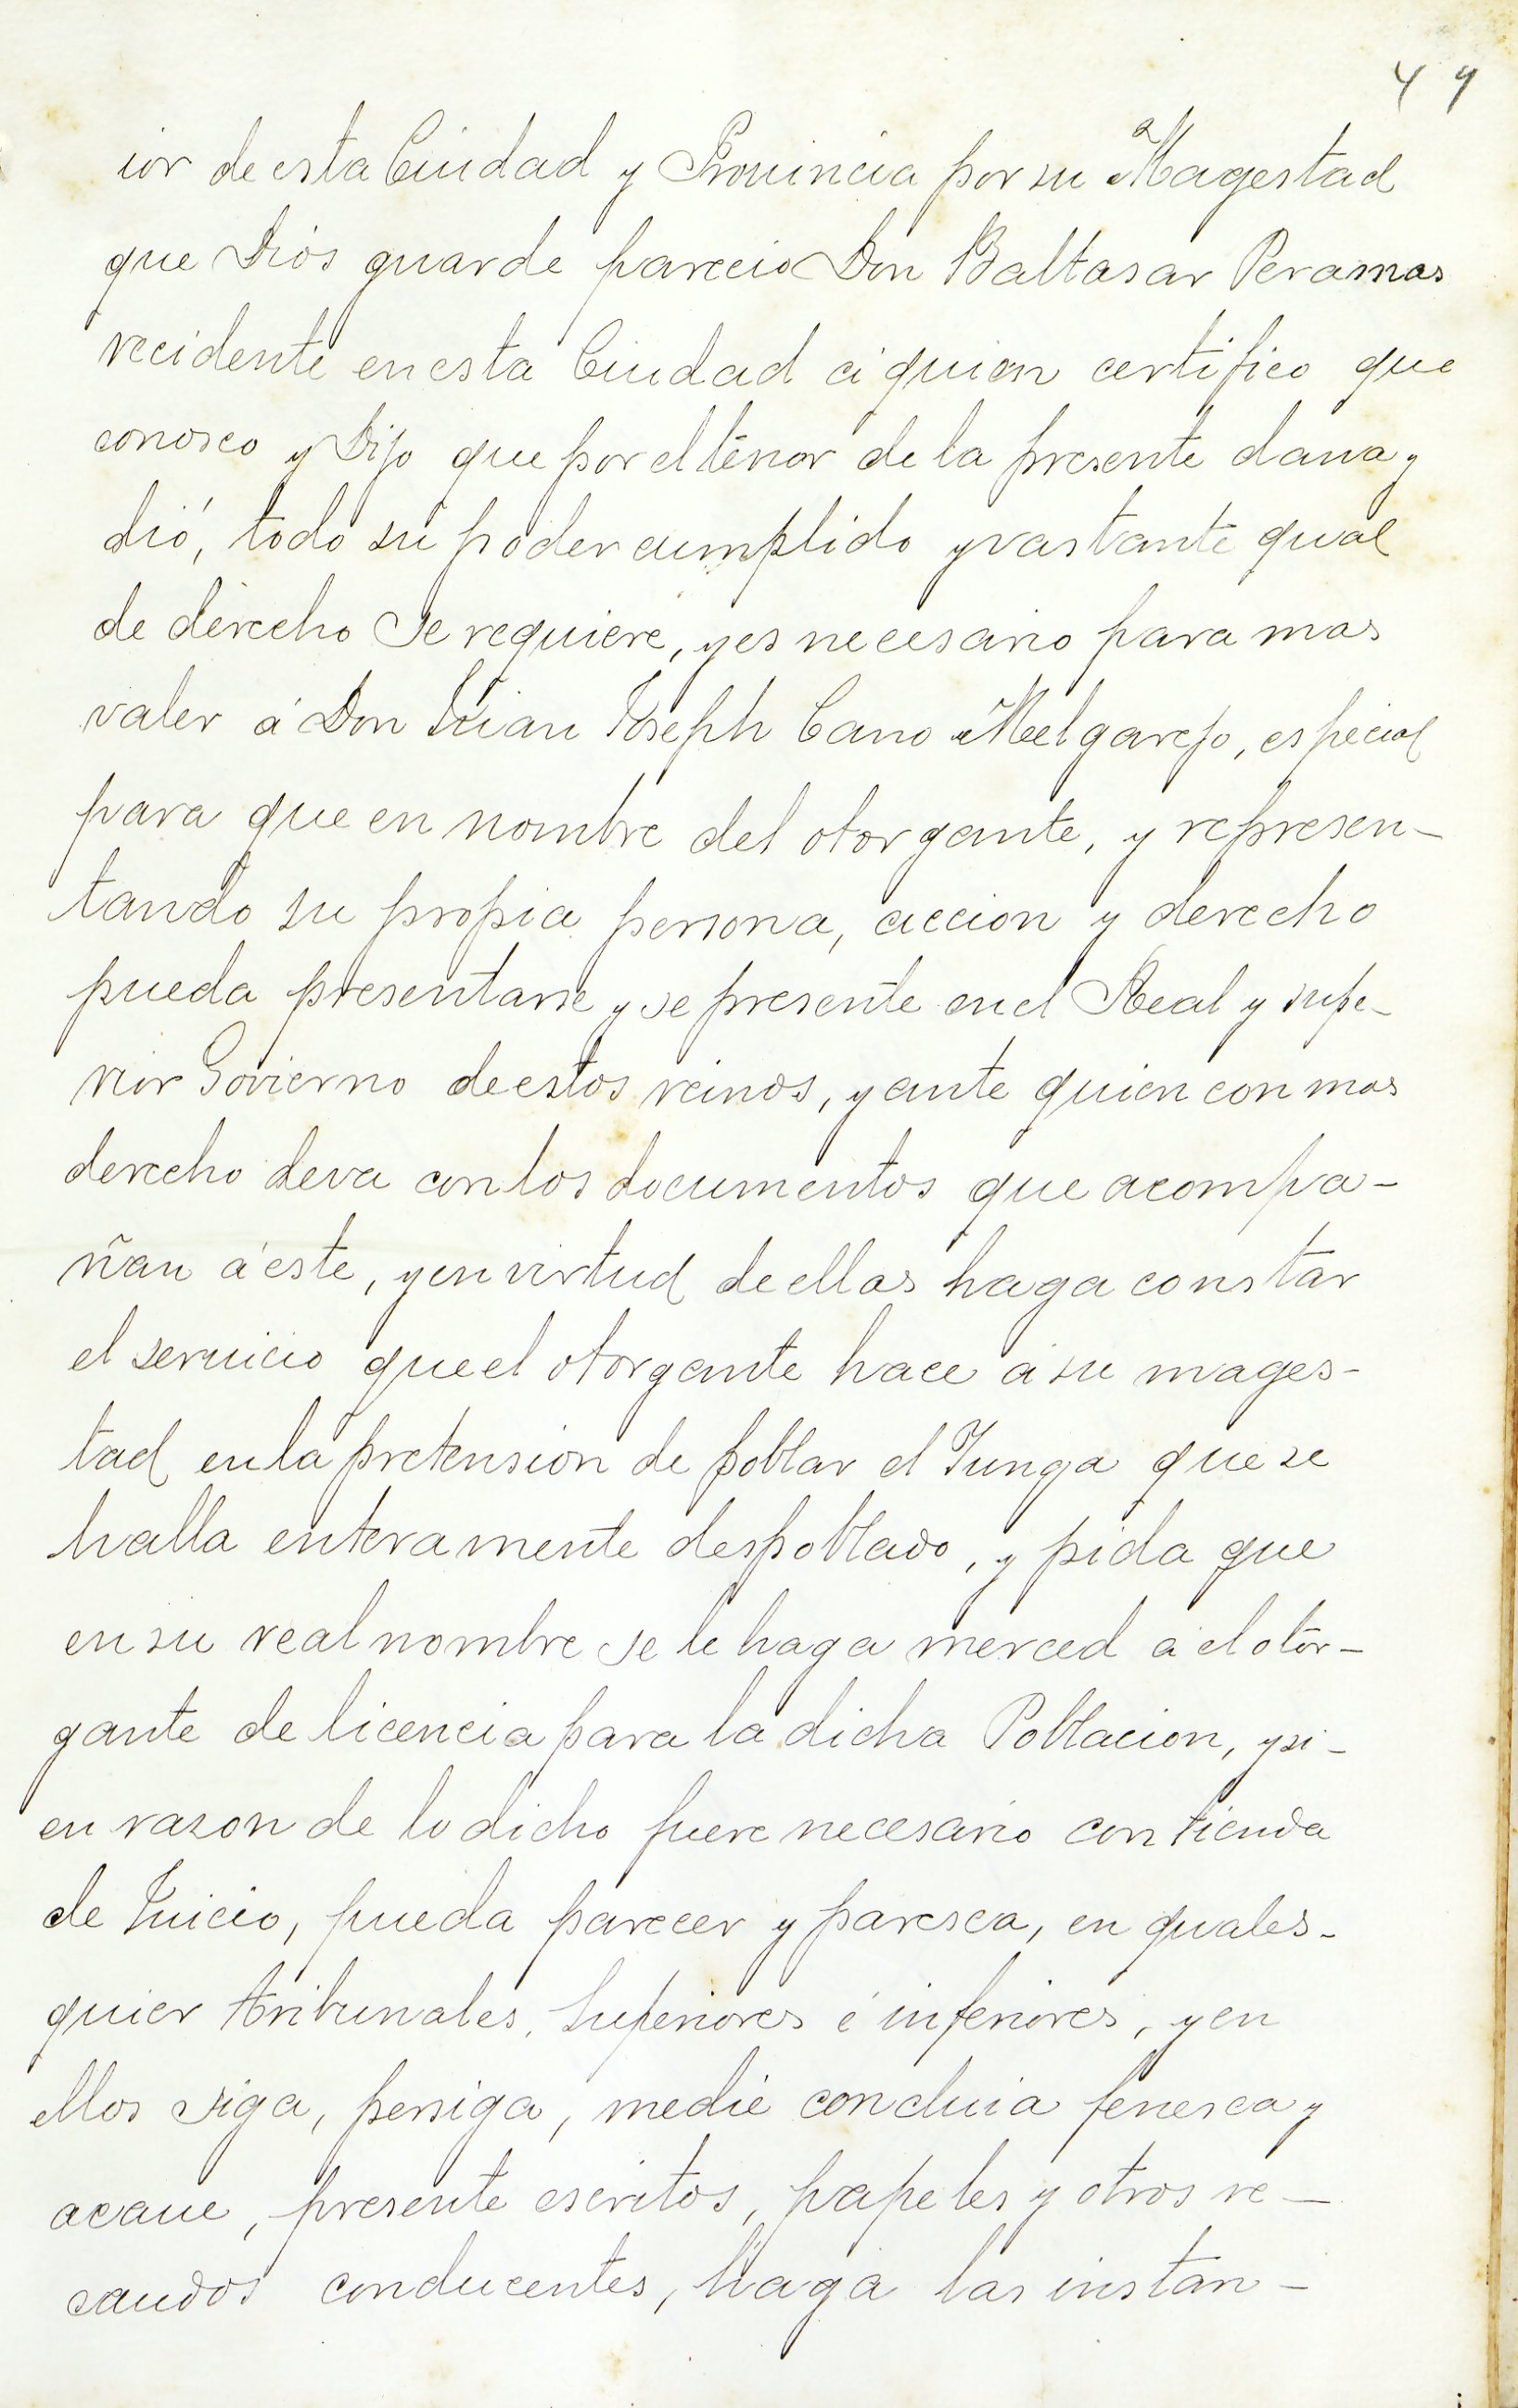 49
ior de esta Ciudad y Prouincia por su Magestad
que Dios guarde parecio Don Baltasar Peramas
recidente en esta Ciudad á quien certifico que
conosco y Dijo que por el tenor de la presente daua y
dió, todo su poder cumplido y vastante qual
de derecho se requiere, y es necesario para mas
valer á Don Juan Joseph Cano Melgarejo, especial
para que en nombre del otorgante, y represen-
tando su propia persona, accion y derecho
pueda presentarse y se presente en el Real y supe-
rior Govierno de estos reinos, y ante quien con mas
derecho deva con los documentos que acompa-
ñan á este, y en virtud de ellos haga constar
el seruicio que el otorgante hace á su mages-
tad en la pretension de poblar el Tunga que se
halla enteramente despoblado, y pida que
en su real nombre se le haga merced á el otor-
gante de licencia para la dicha Poblacion, y si-
en rason de lo dicho fuere necesario contienda
de Juicio, pueda parecer y paresca, en quales-
quier tribunales, Superiores é inferiores, y en
ellos siga, persiga, medie concluia fenesca y
acaue, presente escritos, papeles y otros re-
caudos conducentes, haga las instan-